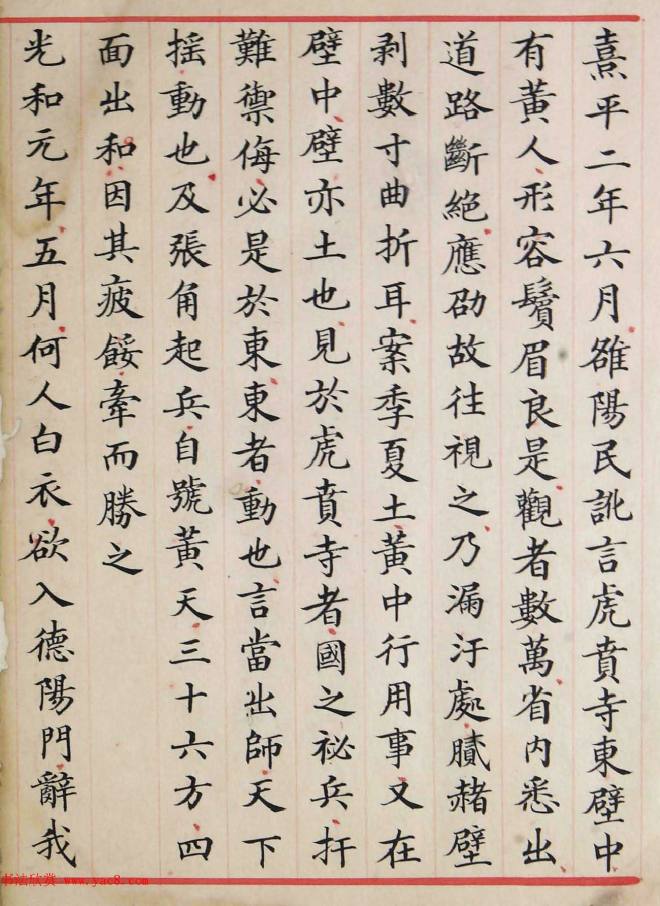 熹平二年六月雒陽民訛言虎賁寺東壁中
有黃人形容鬢眉良是觀者數萬省內悉出
道路斷絕應劭故往視之乃漏汙處膩赭壁
剥數寸曲折耳案季夏土黃中行用事又在
壁中壁亦土也見於虎賁寺者國之祕兵扞
難禦侮必是於東東者動也言當出師天下
摇動也及張角起兵自號黃天三十六方四
面出和因其疲餒牽而勝之
光和元年五月何人白衣欲入德陽門辭我
书法欣赏 www.yac8.com